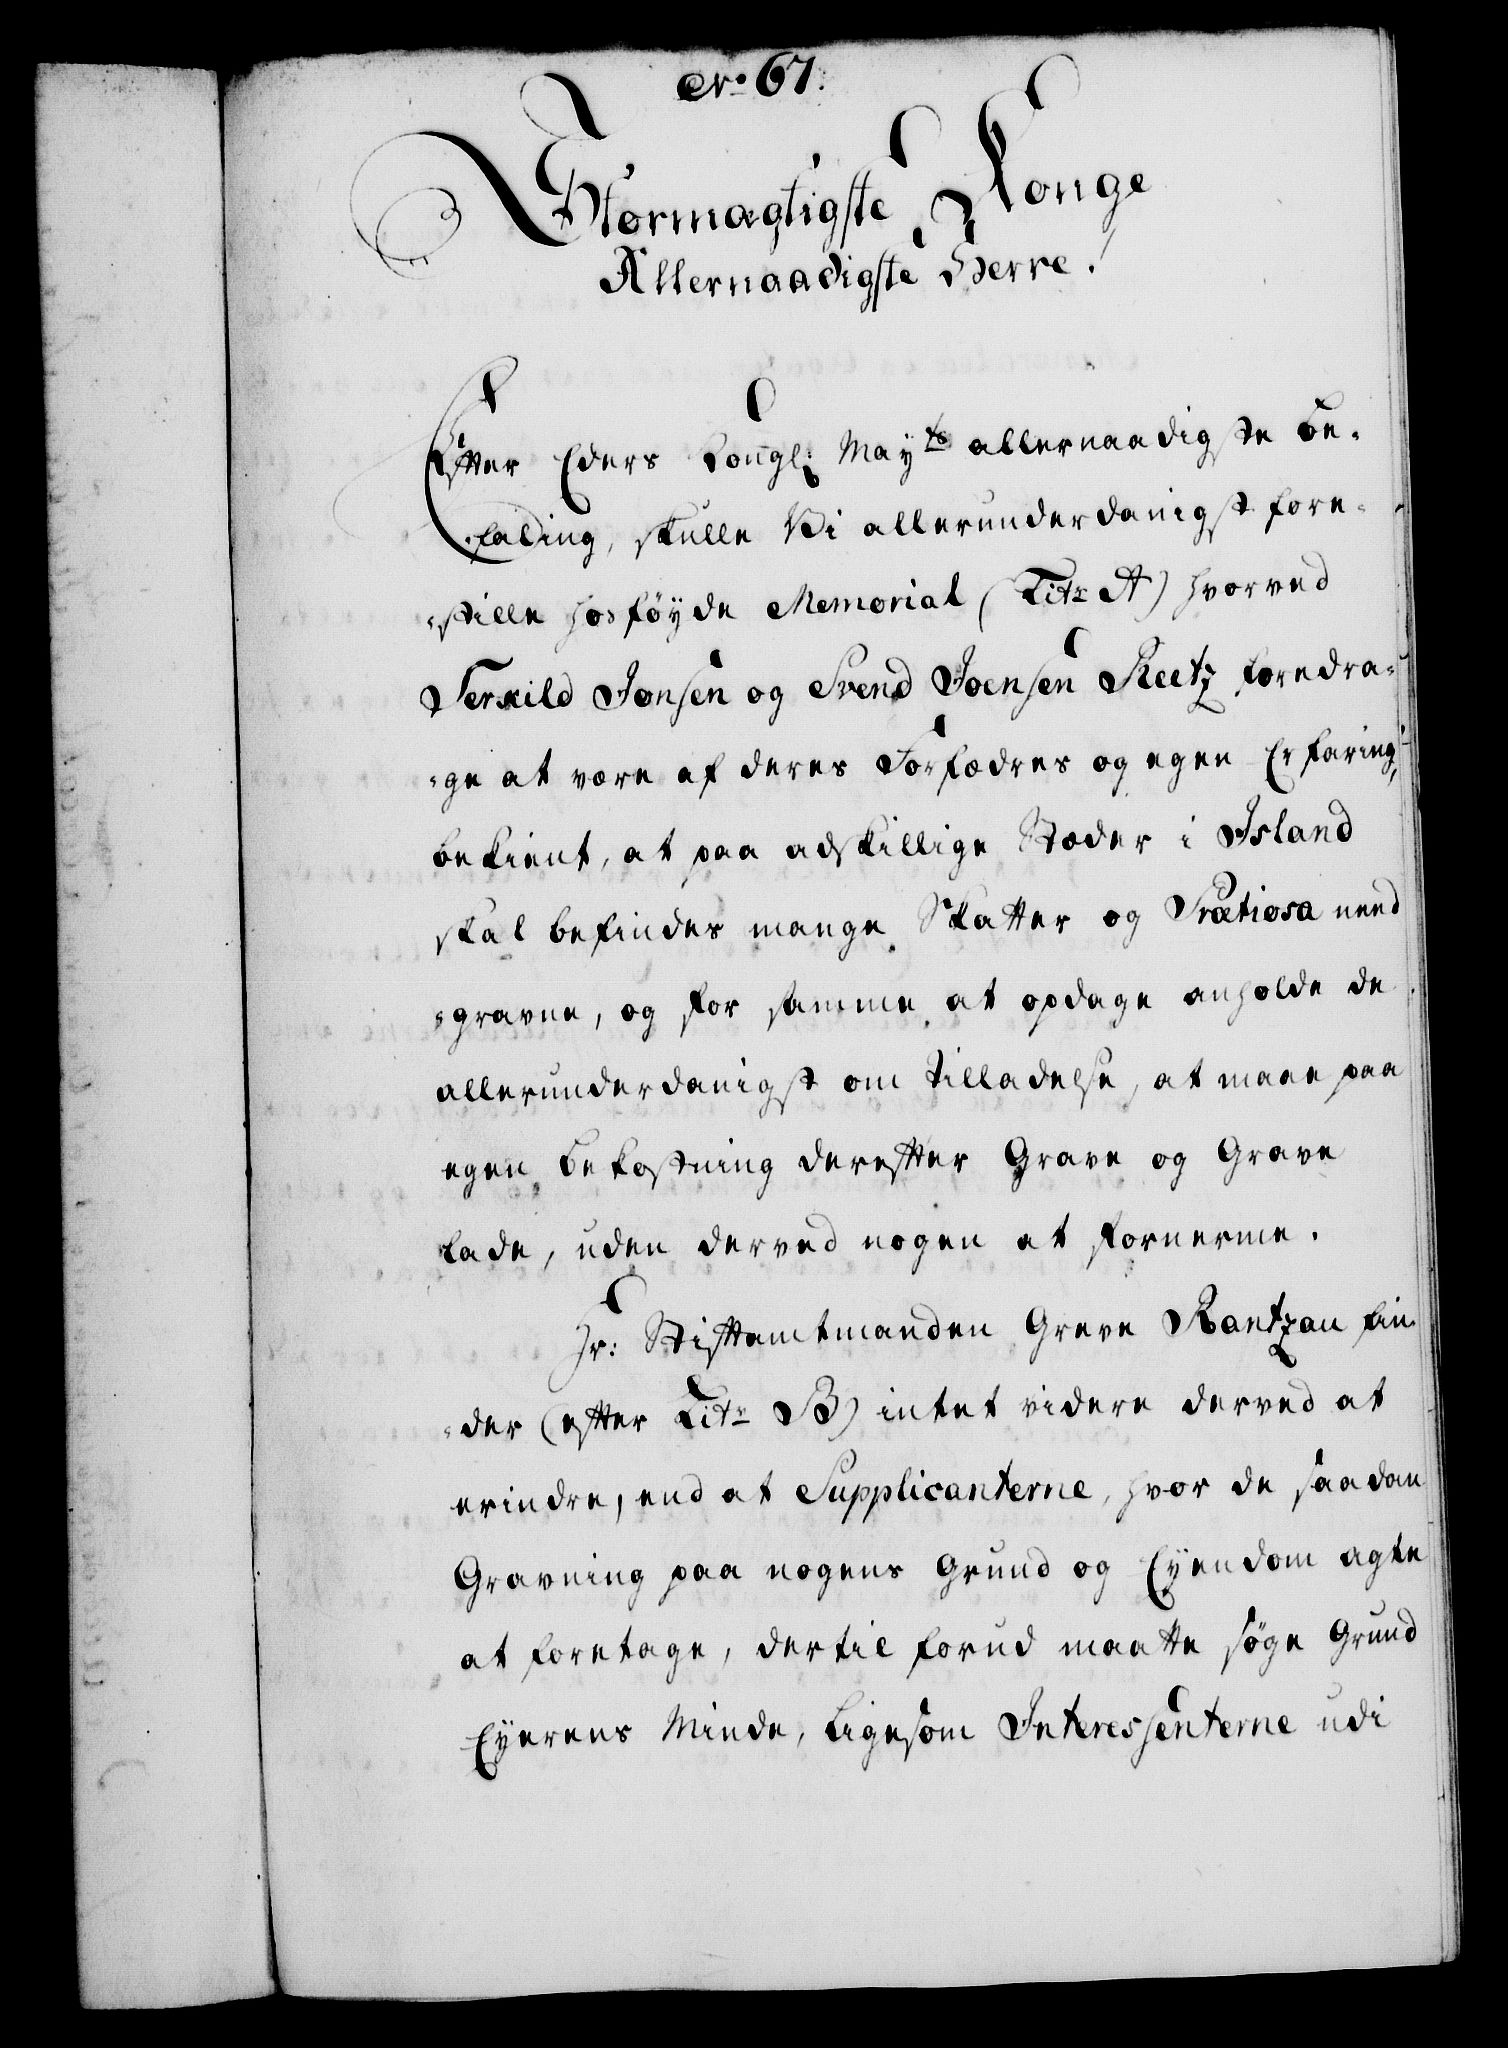 No. 67.
Stormægtigste Konge
Allernaadigste Herre!
Efter Eders Kongl: Mayts allernaadigste Be-
-faling, skulle Vi allerunderdanigst fore-
-stille hosføyde Memorial (Litr A) hvorved
Terkild Jonsen og Svend Joensen Reetz foredra-
-ge at være af deres Forfædres og egen Erfaring,
bekient, at paa adskillige Stæder i Island
skal befindes mange Skatter og Prætiosa need
-gravne, og for samme at opdage anholde de
allerunderdanigst om Tilladelse, at maae paa
egen Bekostning derefter Grave og Grave
lade, uden derved nogen at fornerme.
Hr: Stiftamtmanden Greve Rantzau fin-
-der (efter Litr B) intet videre derved at
erindre, end at Supplicanterne, hvor de saadan
Gravning paa nogens Grund og Eyendom agte
at foretage, dertil forud maatte søge Grund
Eyerens Minde, ligesom Interessenterne udi